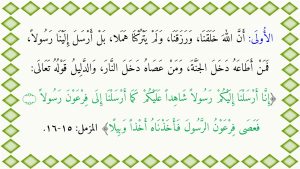 الأُولَى: أَنَّ اللهَ خَلَقَنَا، وَرَزَقَنَا، وَلَمْ يَتْرُكْنَا هَمَلا، بَلْ أَرْسَلَ إِلَيْنَا رَسُولاً،
فَمَنْ أَطَاعَهُ دَخَلَ الجَنَّةَ، وَمَنْ عَصَاهُ دَخَلَ النَّارَ، وَالدَّلِيلُ قَوْلُهُ تَعَالَى:
﴿إِنَّا أَرْسَلْنَا إِلَيْكُمْ رَسُولاً شَاهِداً عَلَيْكُمْ كَمَا أَرْسَلْنَا إِلَى فِرْعَوْنَ رَسُولاً
فَعَصَى فِرْعَوْنُ الرَّسُولَ فَأَخَذْنَاهُ أَخْذاً وَبِيلًا﴾ المزمل: ١٥-١٦.